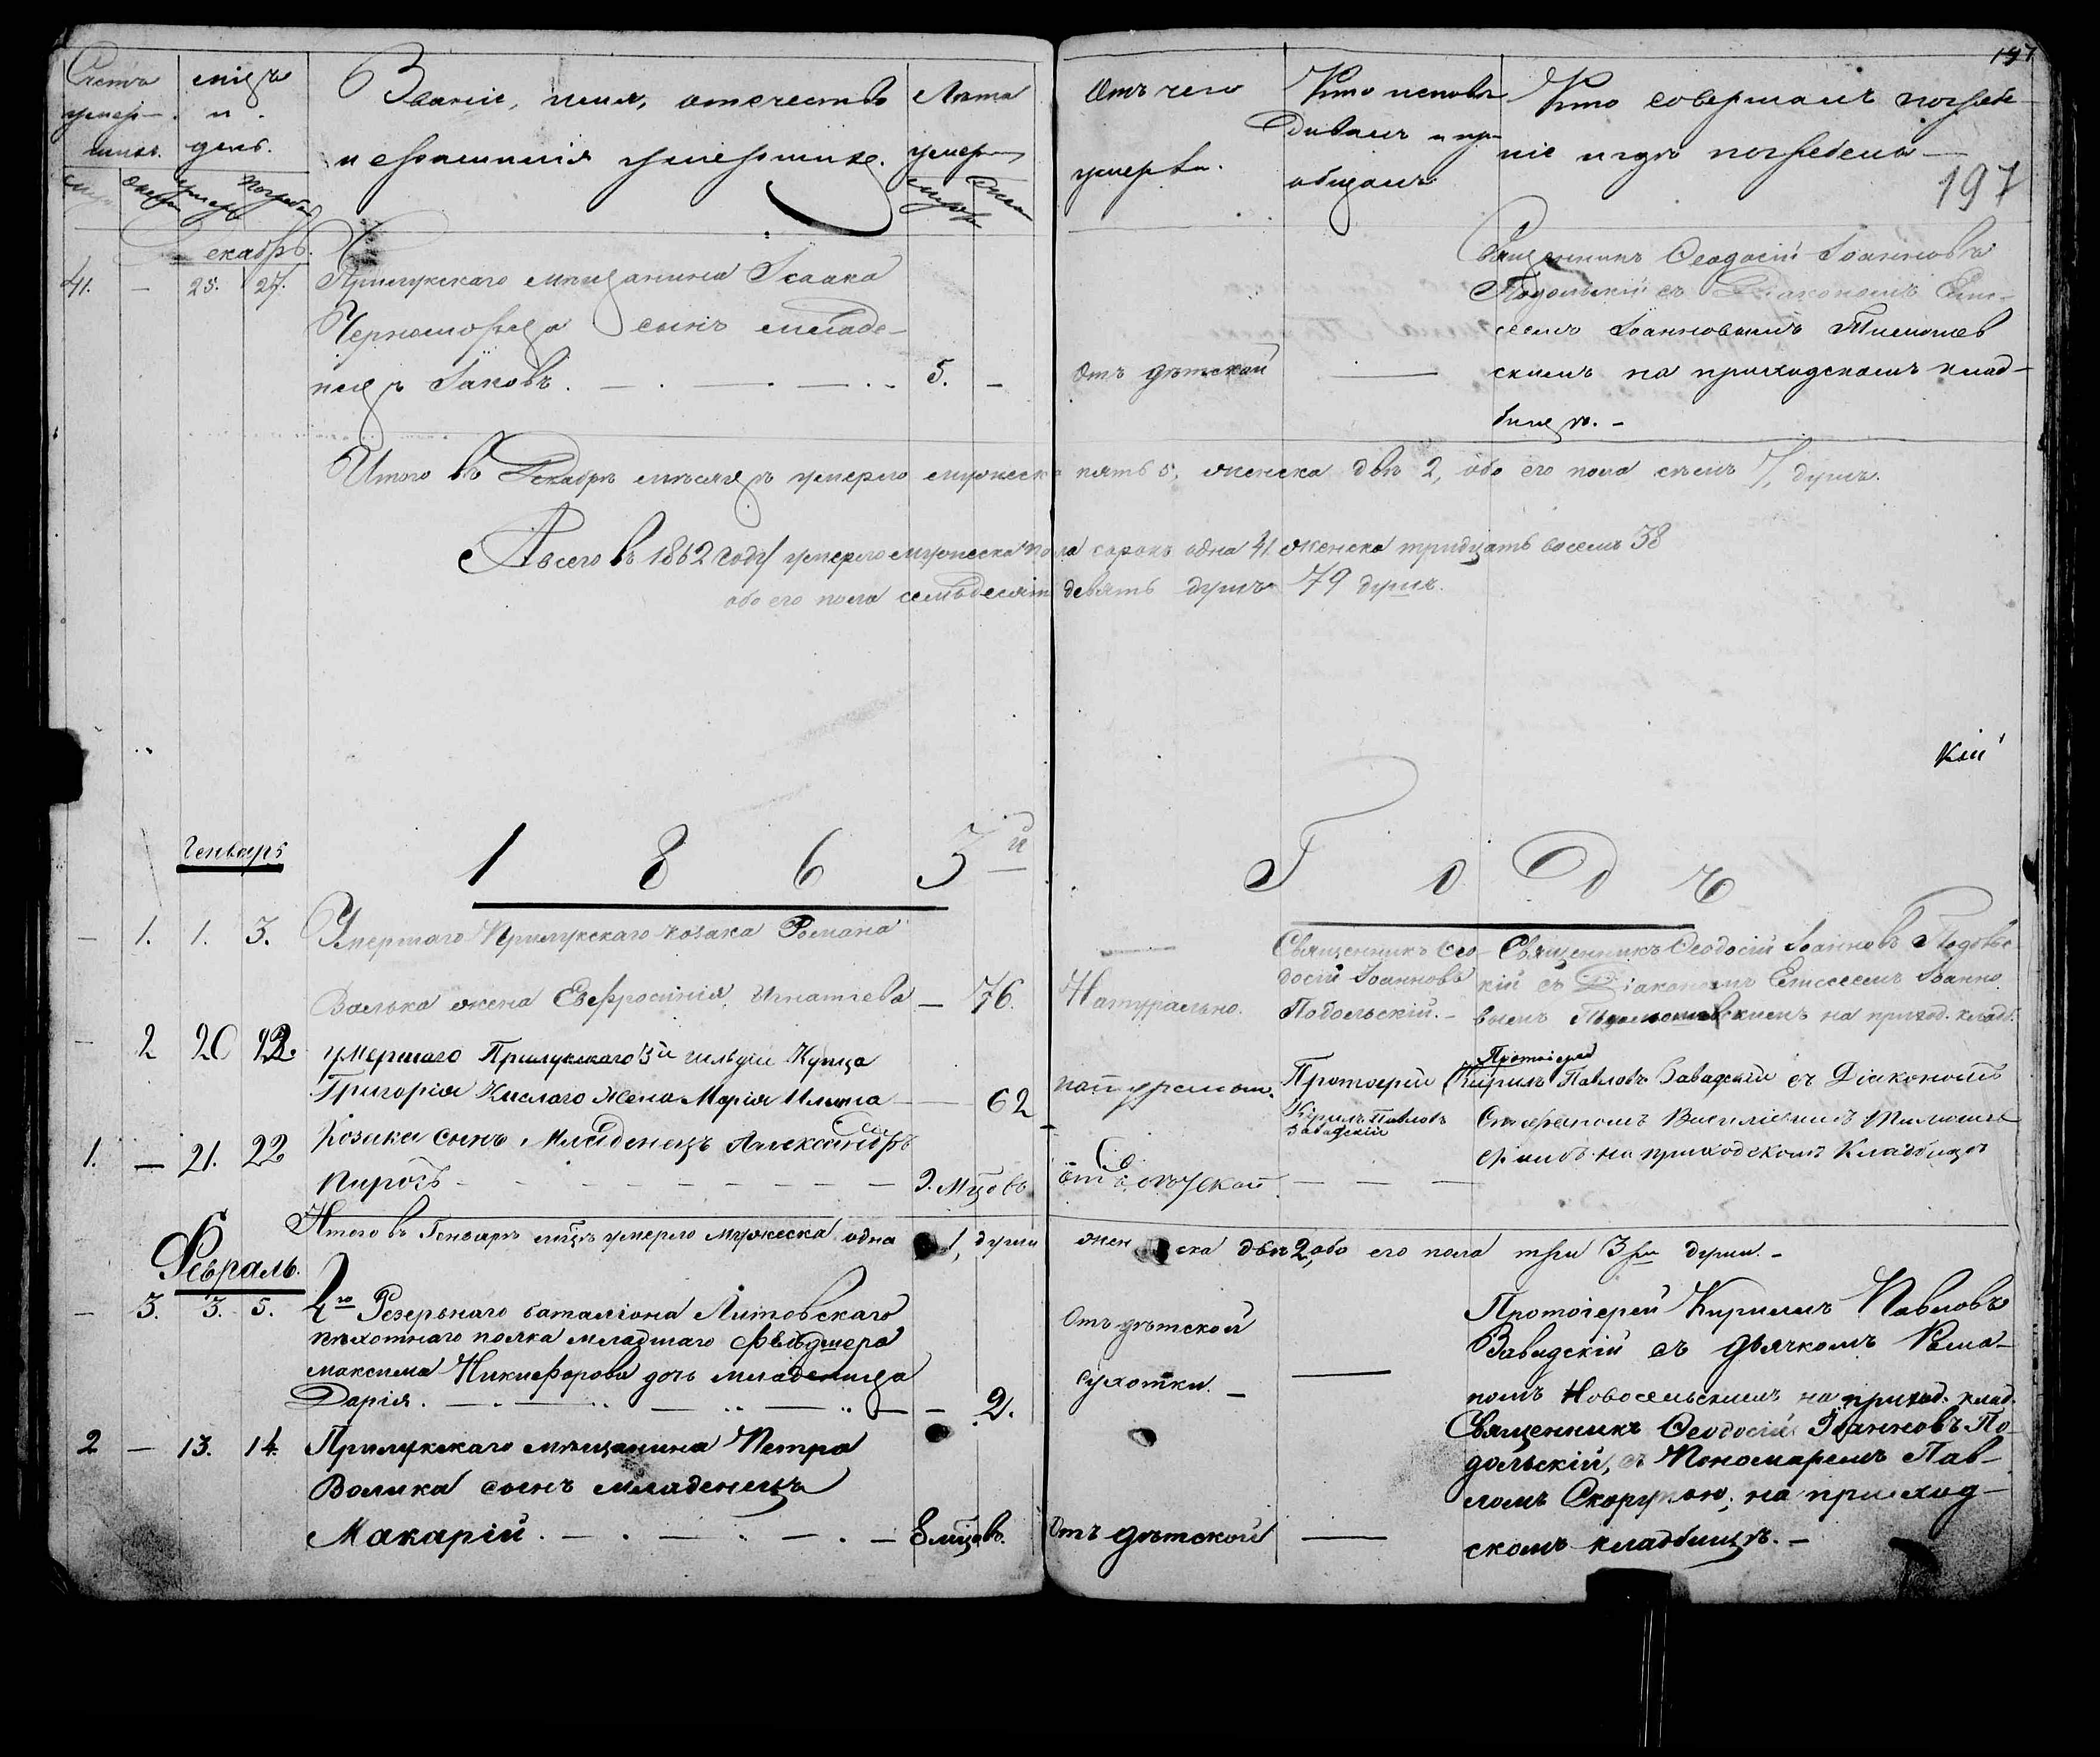 197
Счетъ умер-шихъ.
мѣсяцъ и день.
Званіе, имя, отечество
и фамилія умершихъ.
Лѣта
умер
Отъ чего
умерли.
Кто исповѣ
дывалъ и прі
общалъ
Кто совершалъ погребе-
ніе и гдѣ погребены
197
Декабрь.
41. — 25. 27. Прилукскаго мѣщанина Ісаака
Черноморца сынъ младе-
нецъ Іаковъ. 5. —
Отъ дѣтской —
Священникъ Ѳеодосій Іоанновъ
Подольскій съ Діакономъ Ели-
сеемъ Іоанновымъ Тимошев
скимъ на приходскомъ клад-
бищѣ. -
Итого въ Декабрѣ мѣсяцѣ умерло мужеска пять 5, женска двѣ 2, обо его пола семь 7, душъ.
А всего въ 1862 году умерло мужеска пола сорокъ одна 41. женска тридцать восемь 38
обо его пола семьдесятъ девять душъ 79 душъ.
кій
Генварь
1 8 6 3й Г о д ъ
— 1. 1. 3. Умершаго Прилукскаго козака Романа
Валька жена Евфросинія Игнатіева — 76.
Натурально.
Священникъ Ѳео-
досій Іоанновъ
Подольскій. -
Священникъ Ѳеодосій Іоанновъ Подоль
кій съ Діакономъ Елисеемъ Іоанно
вымъ Тимошевскимъ на приход. кладб.
— 2 20 22. умершаго Прилукскаго 3й гильдіи Купца
Григорія Кислаго жена Марія Ильина — 62
Протоіерей
Кирилъ Павловъ
Завадскій
Протоіерей
Кирилъ Павловъ Завадскій съ Діакономъ
Стефаномъ Василіевымъ Тимоше
на приходскомъ Кладбищѣ
1. — 21. 22 Козака сынъ Младенецъ Александръ
9. Мцовъ
— — —
Итого въ Генварѣ мцѣ умерло мужеска одна 1, душа женска двѣ 2, обо его пола три 3ри души. -
Февраль.
— 3. 3. 5. 4го Резервнаго баталіона Литовскаго
пѣхотнаго полка младшаго Фельдшера
Максима Никифорова дочь младеница
Дарія. — 2.
Отъ дѣтской
Сухотки. —
Протоіерей Кириллъ Павловъ
Завадскій съ дьячкомъ Рома-
номъ Новосельскимъ на приход. клад.
2 — 13. 14. Прилукскаго мѣщанина Петра
Волика сынъ младенецъ
Макарій. — 8 мцовъ.
Отъ дѣтской —
Священникъ Ѳеодосій Іоанновъ По-
дольскій, съ Пономаремъ Пав-
ломъ Скорупою, на приход-
скомъ кладбищѣ. -